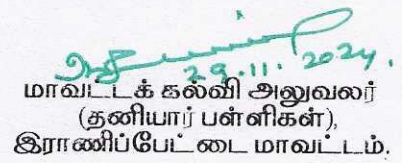 29.11.2024.
மாவட்டக் கல்வி அலுவலர்
(தனியார் பள்ளிகள்),
இராணிப்பேட்டை மாவட்டம்.